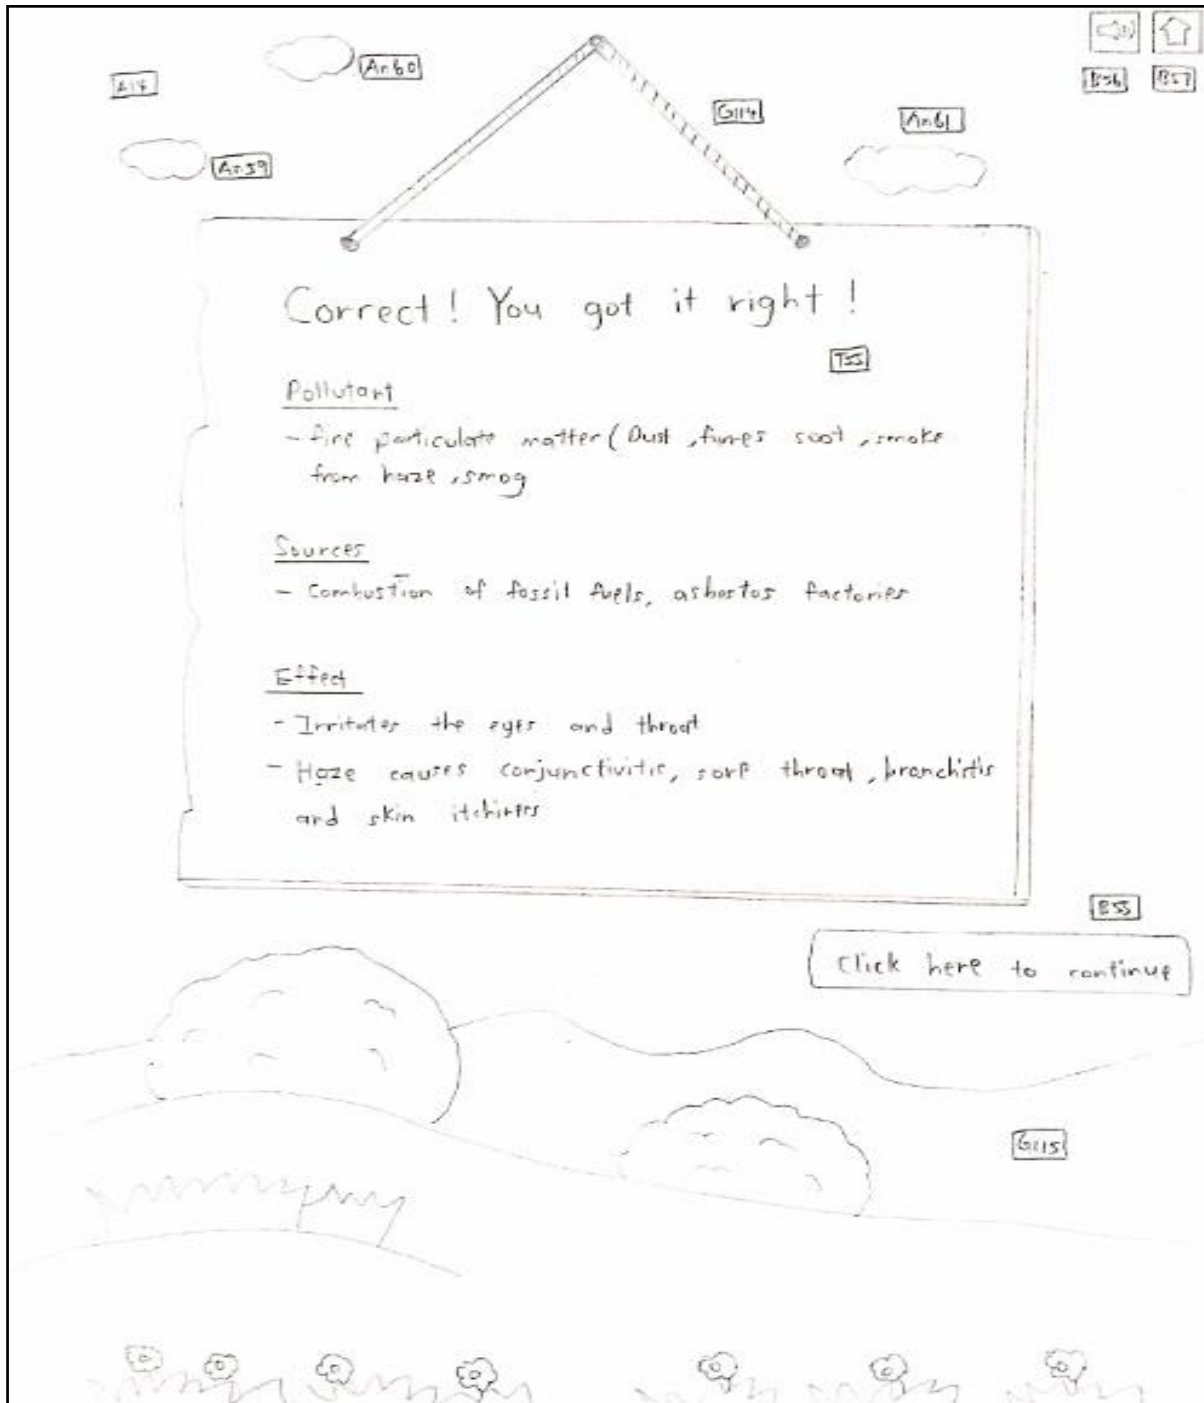 An60
A14
G114
An61
B56 B57
An59
Correct! You got it right!
T55
Pollutant
- fine particulate matter (Dust, fumes soot, smoke
from haze, smog
Sources
- Combustion of fossil fuels, asbestos factories
Effect
- Irritates the eyes and throat
- Haze causes conjunctivitis, sore throat, bronchistis
and skin itchiness
B55
Click here to continue
G115